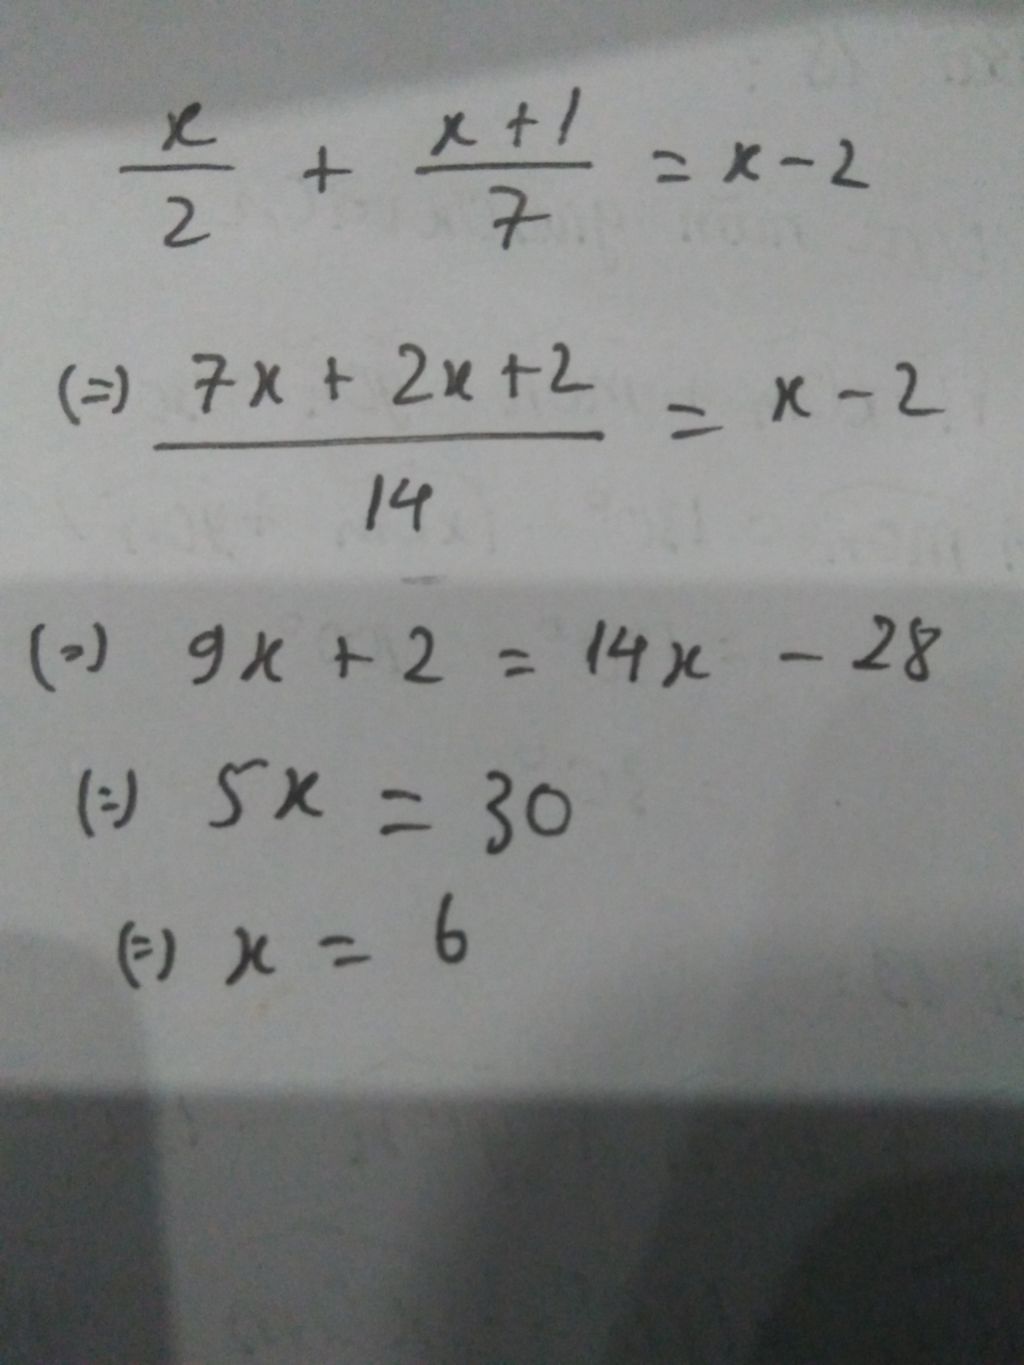 x/2 + (x+1)/7 = x-2
(=) (7x + 2x+2)/14 = x-2
(=) 9x + 2 = 14x - 28
(=) 5x = 30
(=) x = 6